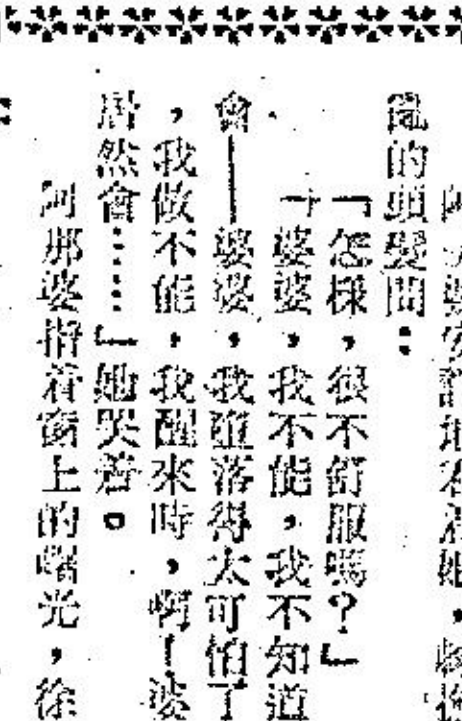 阿那婆安詳地看着她，
亂的頭髮間：
「怎樣，很不舒服嗎？」
「婆婆，我不能，我不知道
會——婆婆，我墮落得太可怕了
，我做不能，我醒來時，啊！婆
居然會……」她哭着。
阿那婆指着窗上的曙光，徐